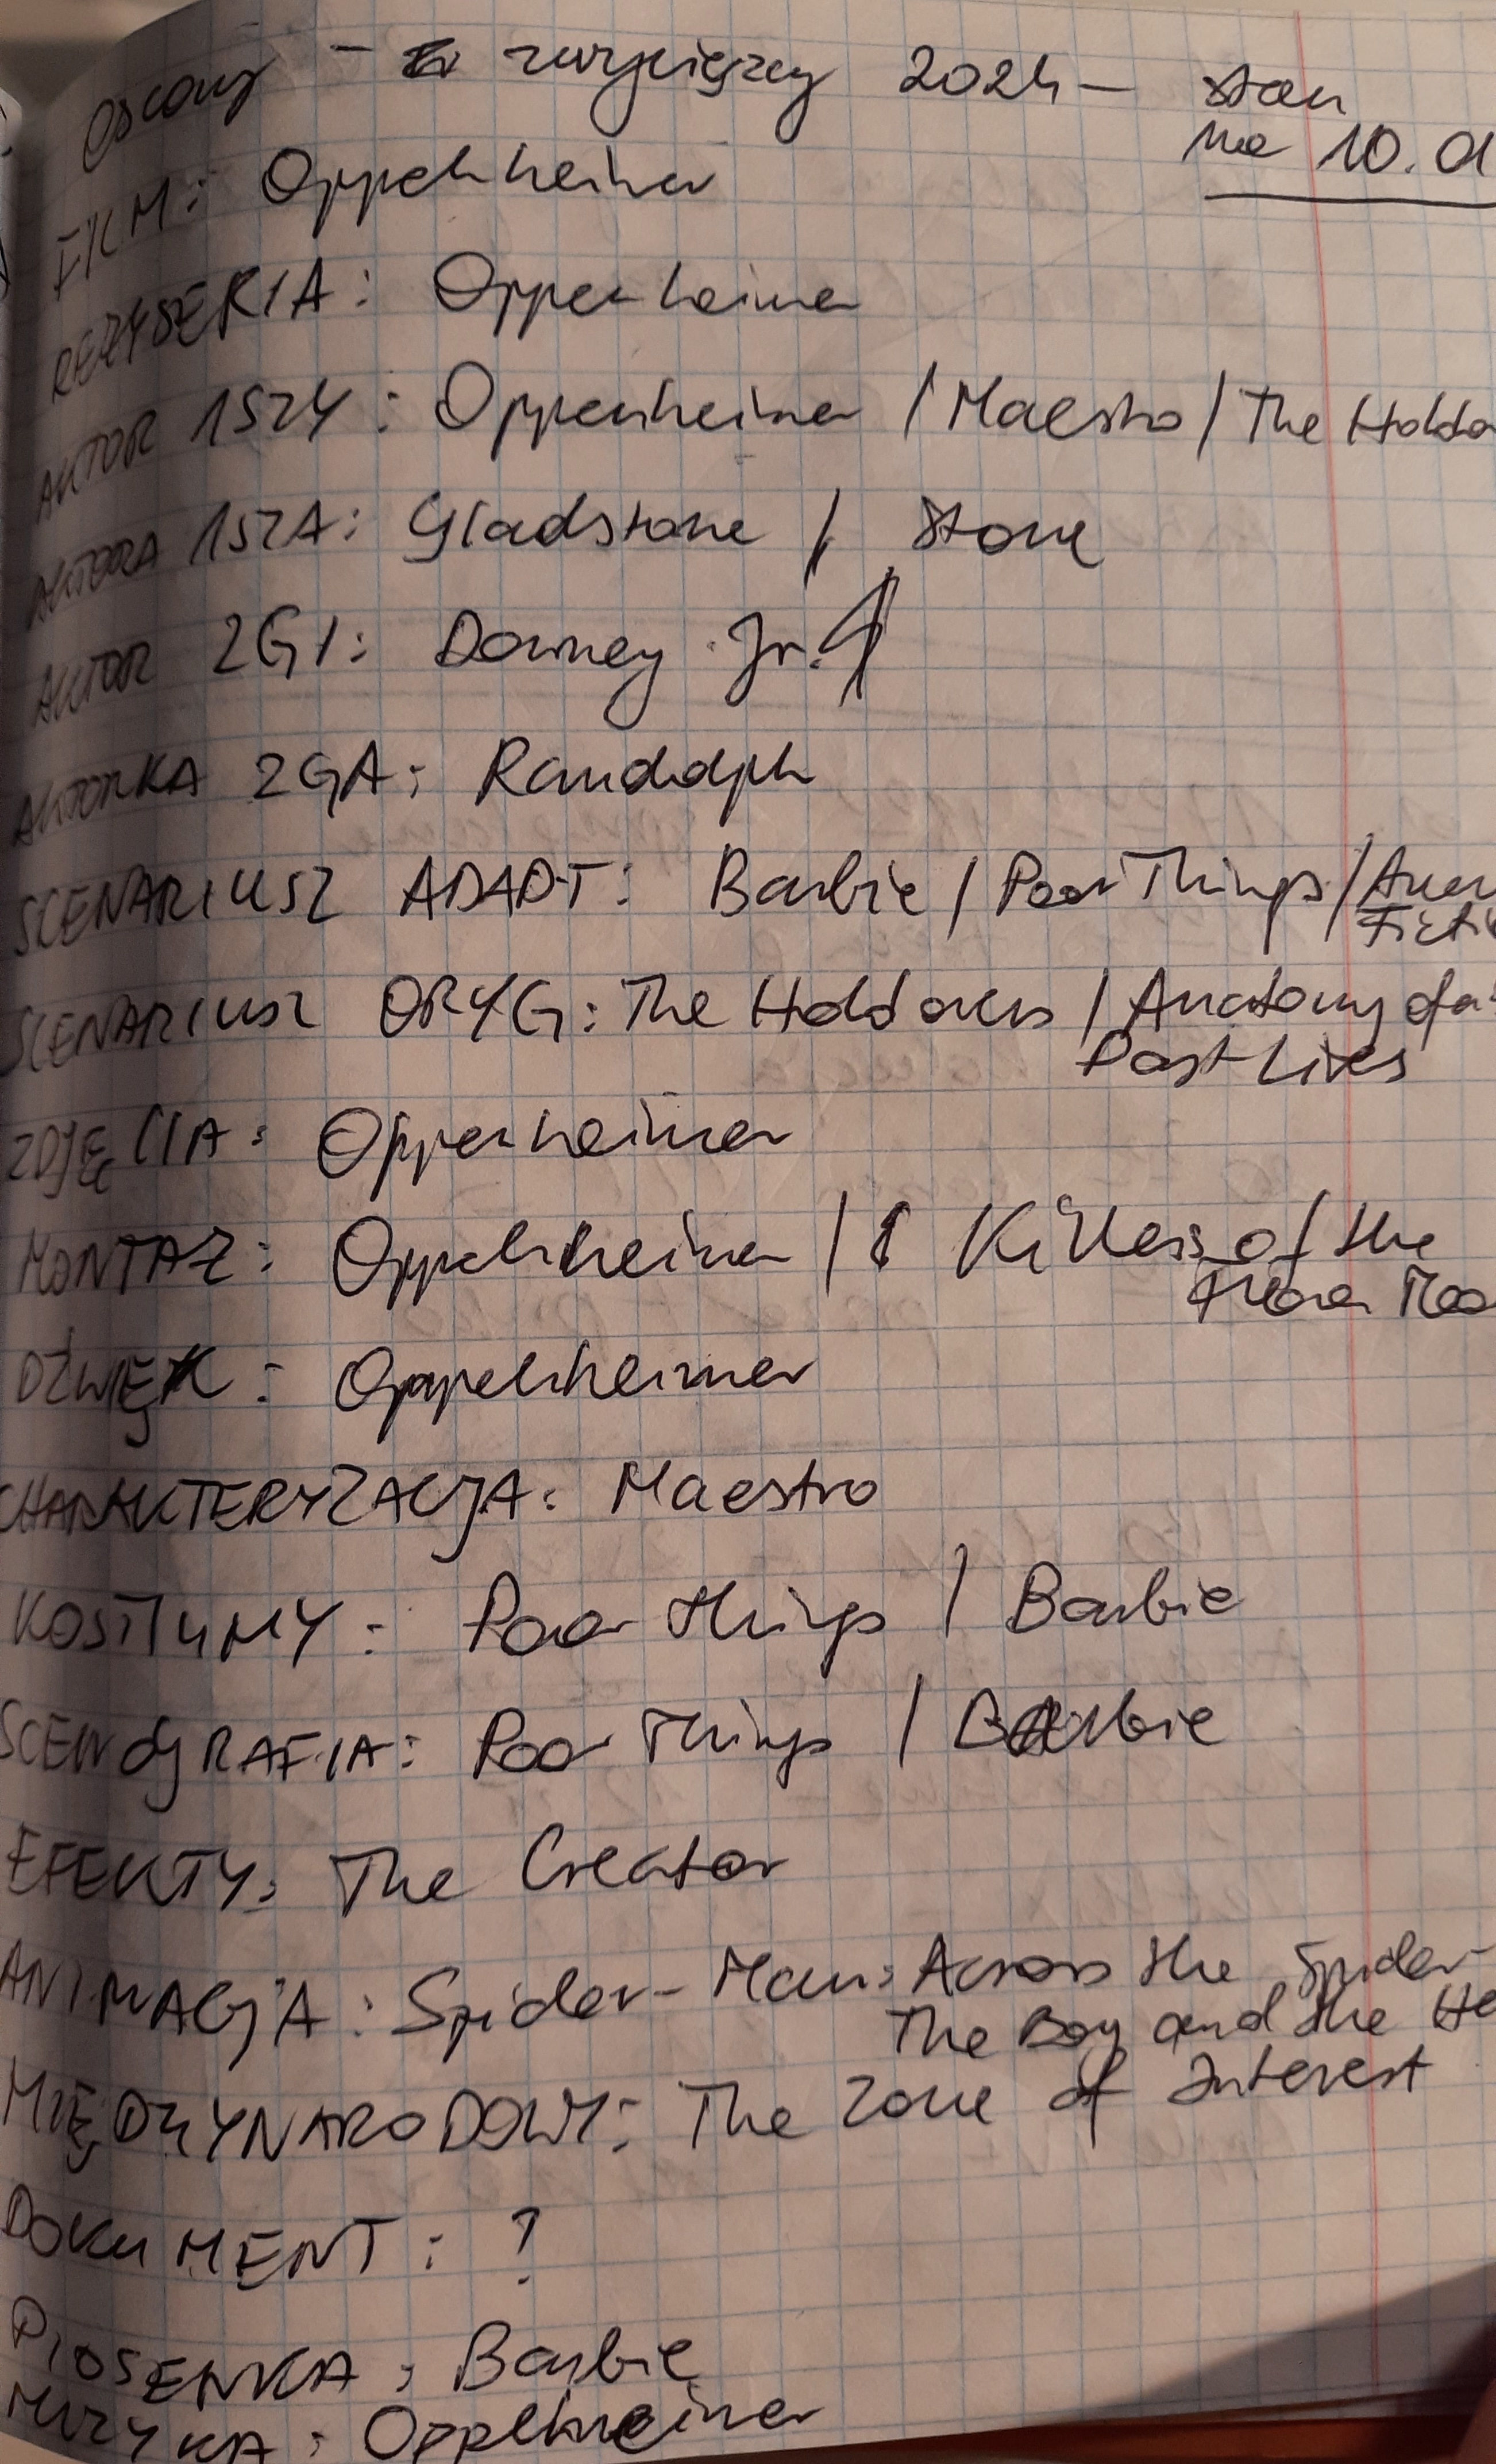 Oscary - zwycięzcy 2024 - stan
na 10.01
FILM: Oppenheimer
REŻYSERIA: Oppenheimer
AKTOR 1SZY: Oppenheimer / Maestro / The Holdo
AKTORKA 1SZA: Gladstone / Stone
AKTOR 2GI: Downey Jr.
AKTORKA 2GA: Randolph
SCENARIUSZ ADAPT: Barbie / Poor Things / Amer
Ficti
SCENARIUSZ ORYG: The Holdovers / Anatomy of a
Past Lives
ZDJĘCIA: Oppenheimer
MONTAŻ: Oppenheimer / Killers of the
Flower Moo
DŹWIĘK: Oppenheimer
CHARAKTERYZACJA: Maestro
KOSTIUMY: Poor things / Barbie
SCENOGRAFIA: Poor Things / Barbie
EFEKTY: The Creator
ANIMACJA: Spider-Man: Across the Spider-
The Boy and the He
MIĘDZYNARODOWY: The Zone of Interest
DOKUMENT: ?
PIOSENKA: Barbie
MUZYKA: Oppenheimer